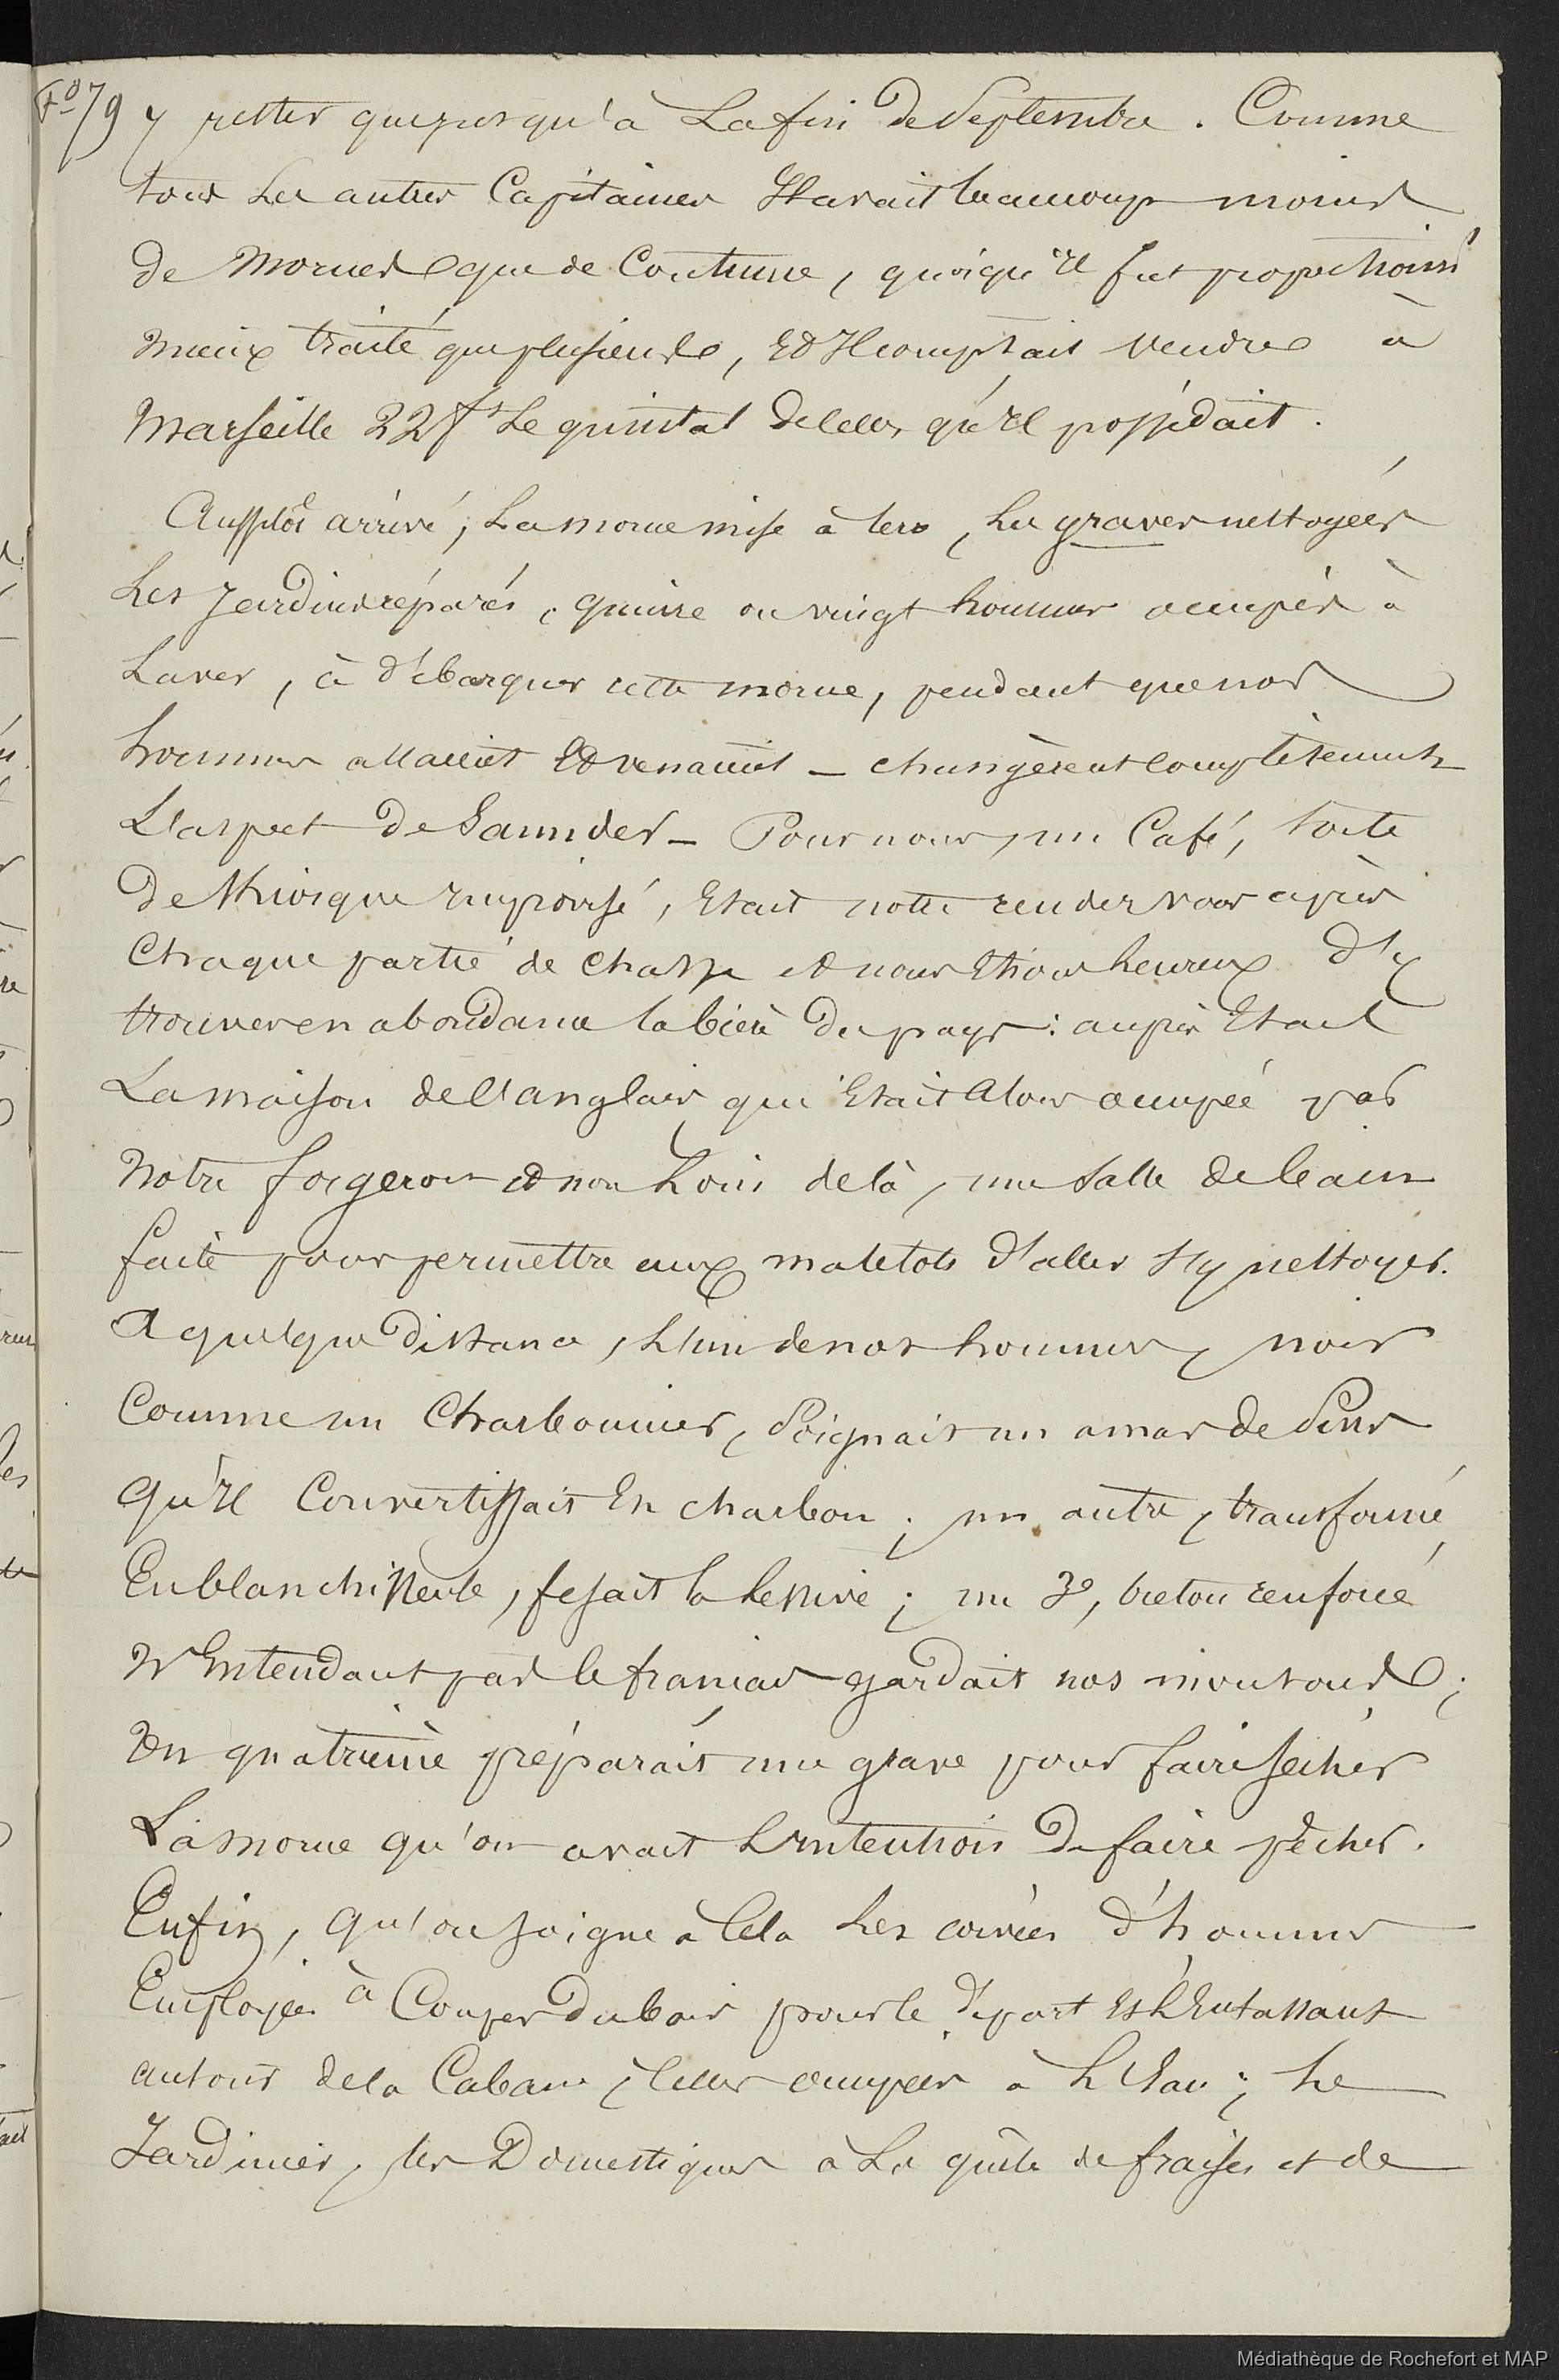 Fo 79 y rester que jusqu'à La fin de Septembre. Comme
tous Les autres Capitaines Il avait beaucoup moins
de Morues que de Coutume, quoiqu'Il fut
mieux traité que plusieurs, Et Il comptait vendre à
Marseille 22 fs Le quintal de celles qu'Il possédait.
Aussitôt arrivé, La morue mise à terre, Les graves nettoyées
Les Jardins réparés, quinze ou vingt hommes occupés à
Laver, à débarquer cette morue, pendant que nos
hommes allaient Et venaient – changèrent complètement
L'aspect de – Pour nous, un Café, sorte
de Kiosque improvisé, Etait notre rendez vous après
Chaque partie de chasse et nous Etions heureux d'y
trouver en abondance la bière du pays : auprès Etait
La maison de l'anglais qui Etait Alors occupée par
Notre forgeron et non Loin de là, une Salle de bain
faite pour permettre aux matelots d'aller s'y nettoyer.
A quelque distance, L'un de nos hommes, noir
Comme un Charbonnier, Soignait un amas de Pins
qu'Il Convertissait En charbon ; un autre, transformé
En blanchisseuse, fesait la lessive ; un 3e, breton renforcé
N'Entendant pas le français gardait nos moutons ;
Un quatrième préparait une grave pour faire sécher
La morue qu'on avait L'Intention De faire pêcher.
Enfin, qu'on joigne à Cela Les corvées d'hommes
Employées à Couper du bois pour le départ Et L'Entassant
autour de la Cabane, Celles occupées à L'Eau ; Le
Jardinier, les Domestiques à La quête de fraises et de
Médiathèque de Rochefort et MAP